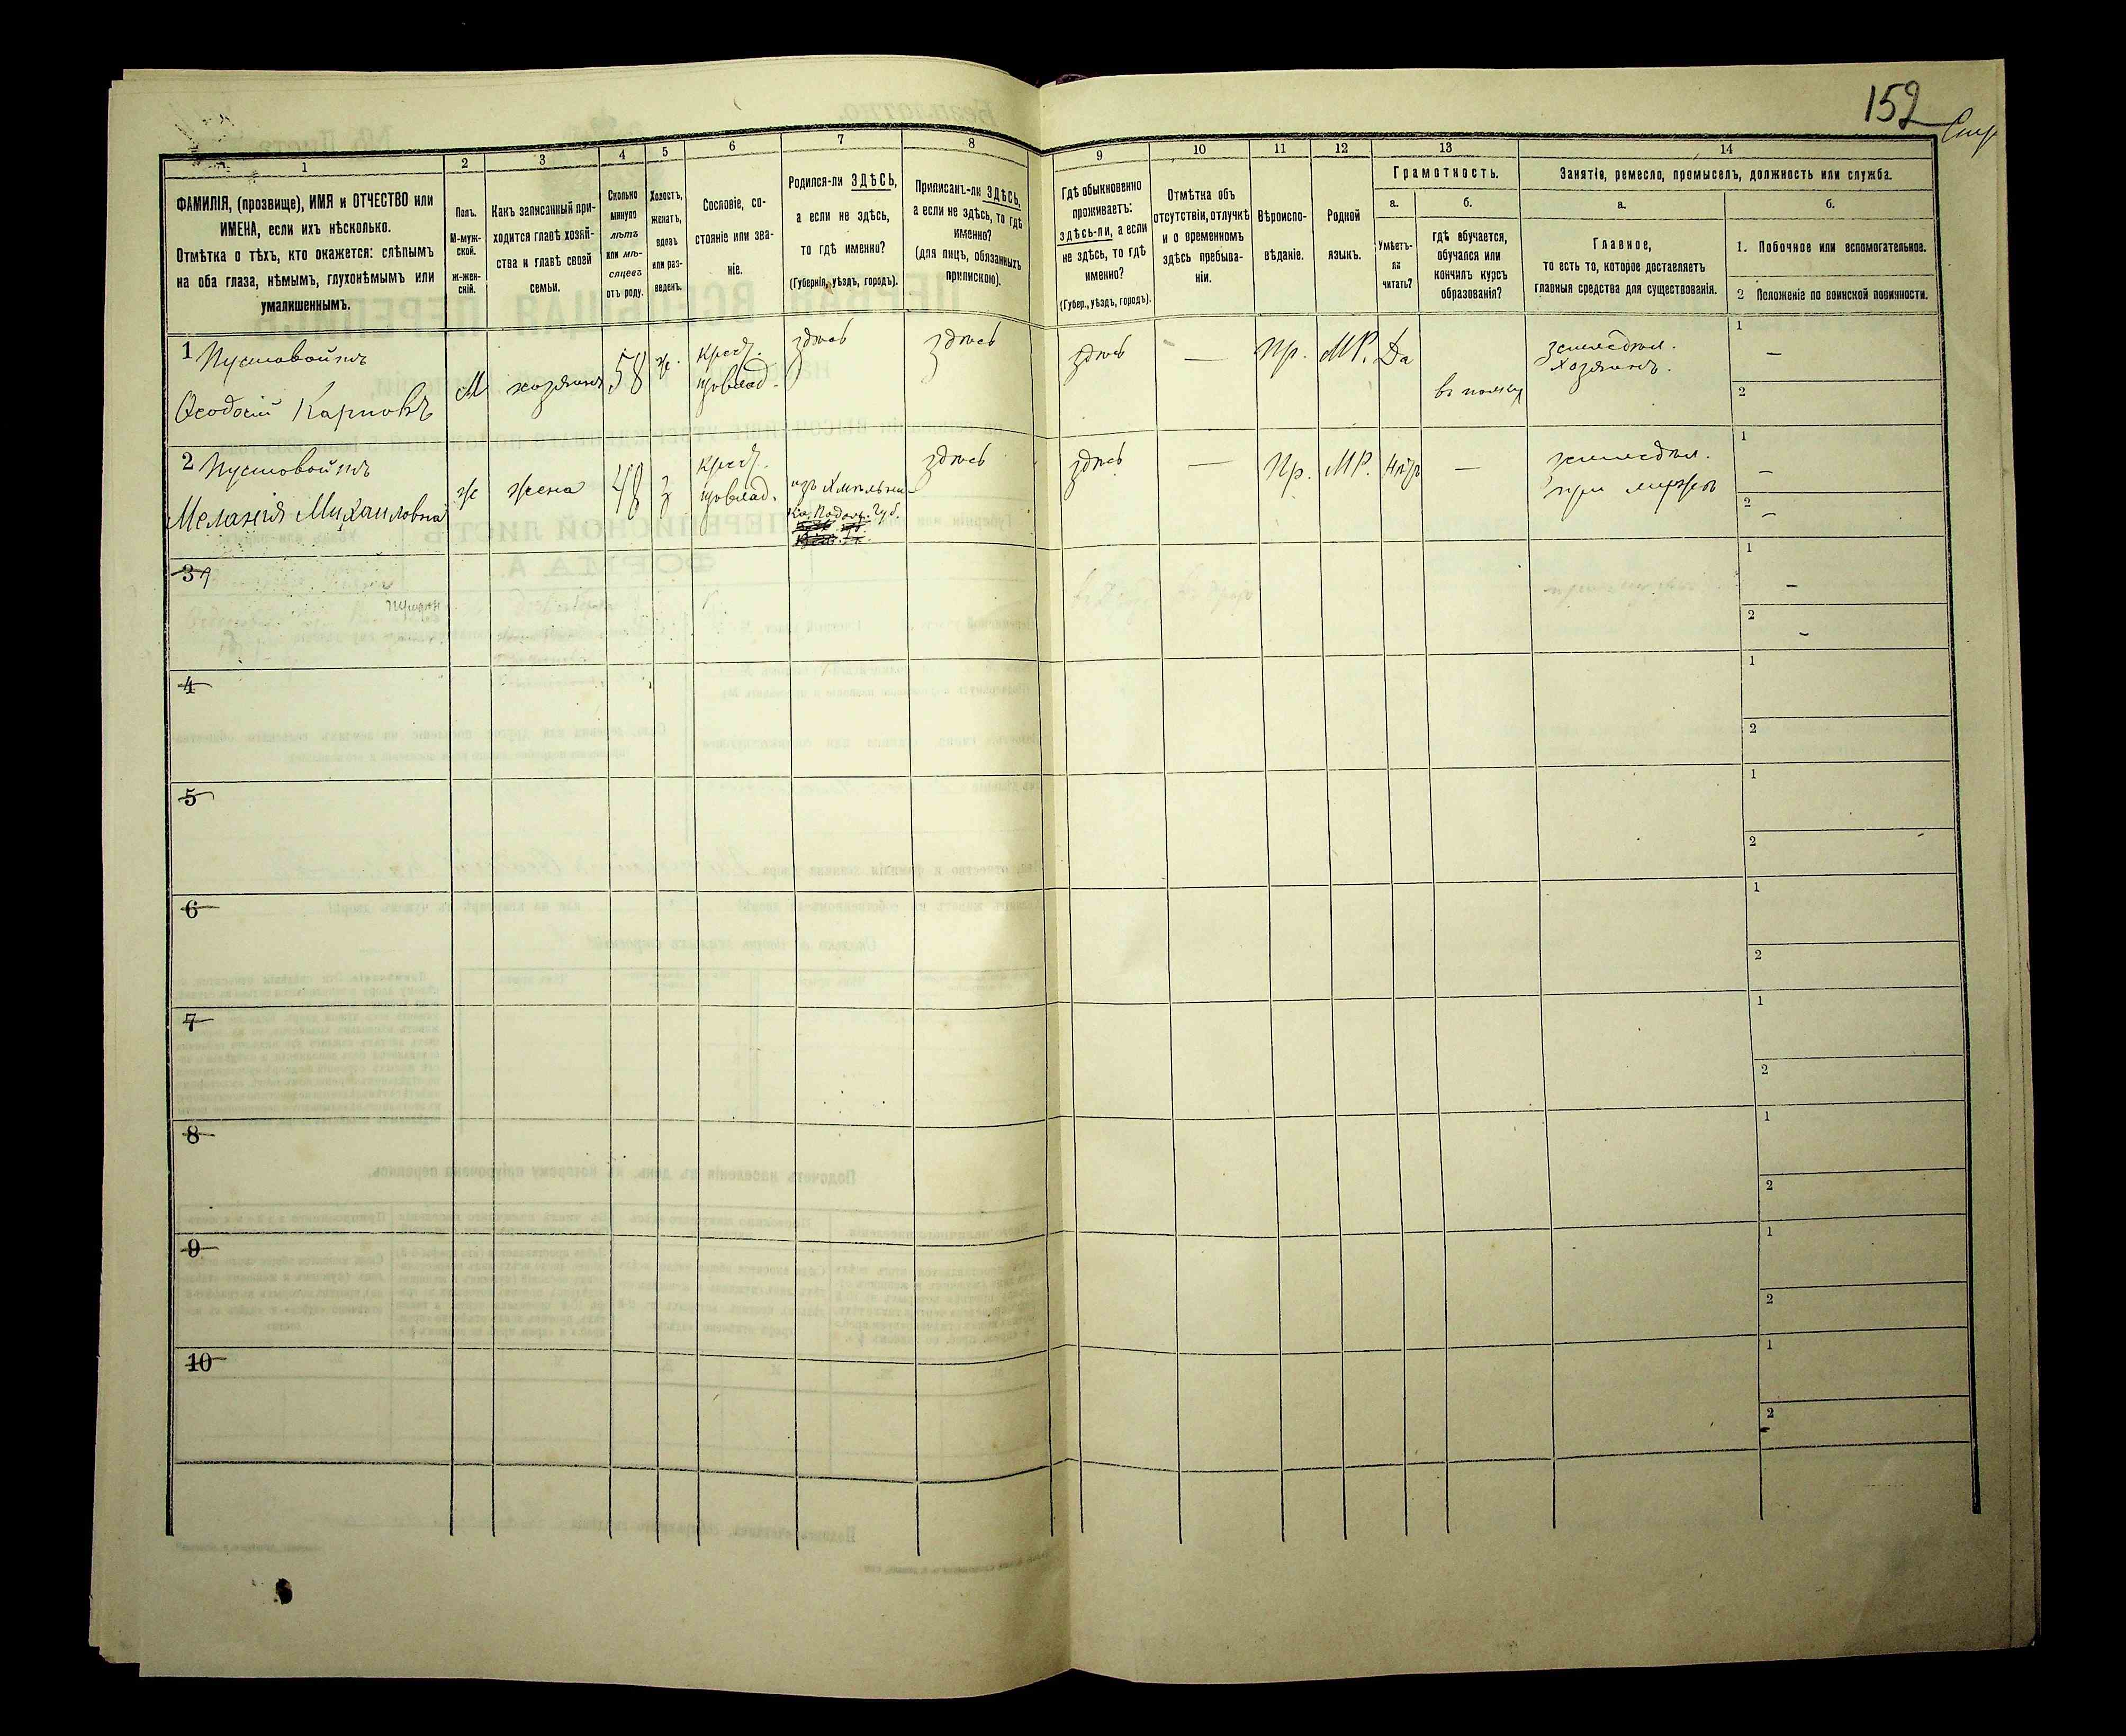 152
1
2
3
4
5
6
7
8
9
10
11
12
13
14
ФАМИЛІЯ, (прозвище), ИМЯ и ОТЧЕСТВО или
ИМЕНА, если ихъ нѣсколько.
Отмѣтка о тѣхъ, кто окажется: слѣпымъ
на оба глаза, нѣмымъ, глухонѣмымъ или
умалишеннымъ.
Полъ.
М-муж-
ской.
Ж-жен-
скій.
Какъ записанный при-
ходится главѣ хозяй-
ства и главѣ своей
семьи.
Сколько
минуло
лѣтъ
или мѣ-
сяцевъ
отъ роду.
Холостъ,
женатъ,
вдовъ
или раз-
веденъ.
Сословіе, со-
стояніе или зва-
ніе.
Родился-ли ЗДѢСЬ,
а если не здѣсь,
то гдѣ именно?
(Губернія, уѣздъ, городъ).
Приписанъ-ли ЗДѢСЬ,
а если не здѣсь, то гдѣ
именно?
(для лицъ, обязанныхъ
припискою).
Гдѣ обыкновенно
проживаетъ:
здѣсь-ли, а если
не здѣсь, то гдѣ
именно?
(Губер., уѣздъ, городъ).
Отмѣтка объ
отсутствіи, отлучкѣ
и о временномъ
здѣсь пребыва-
ніи.
Вѣроиспо-
вѣданіе.
Родной
языкъ.
Грамотность.
а.
Умѣетъ-
ли
читать?
б.
гдѣ обучается,
обучался или
кончилъ курсъ
образованія?
Занятіе, ремесло, промыселъ, должность или служба.
а.
Главное,
то есть то, которое доставляетъ
главныя средства для существованія.
б.
1. Побочное или вспомогательное.
2 Положеніе по воинской повинности.
1 Пустовойтъ
Ѳеодосій Карповъ
М
хозяинъ
58
ж.
Крест.
здѣсь
здѣсь
здѣсь
—
Пр.
МР.
Да
въ полку
земледѣл.
хозяинъ.
1
—
2
2 Пустовойтъ
Меланія Михаиловна
ж
жена
48
з
Крест.
изъ Хмѣльни-
ка, Подол. Губ.
здѣсь
здѣсь
—
Пр.
МР.
Нѣтъ
—
земледѣл.
при мужѣ
1
—
2
—
3
1
—
2
—
4
1
2
5
1
2
6
1
2
7
1
2
8
1
2
9
1
2
10
1
2